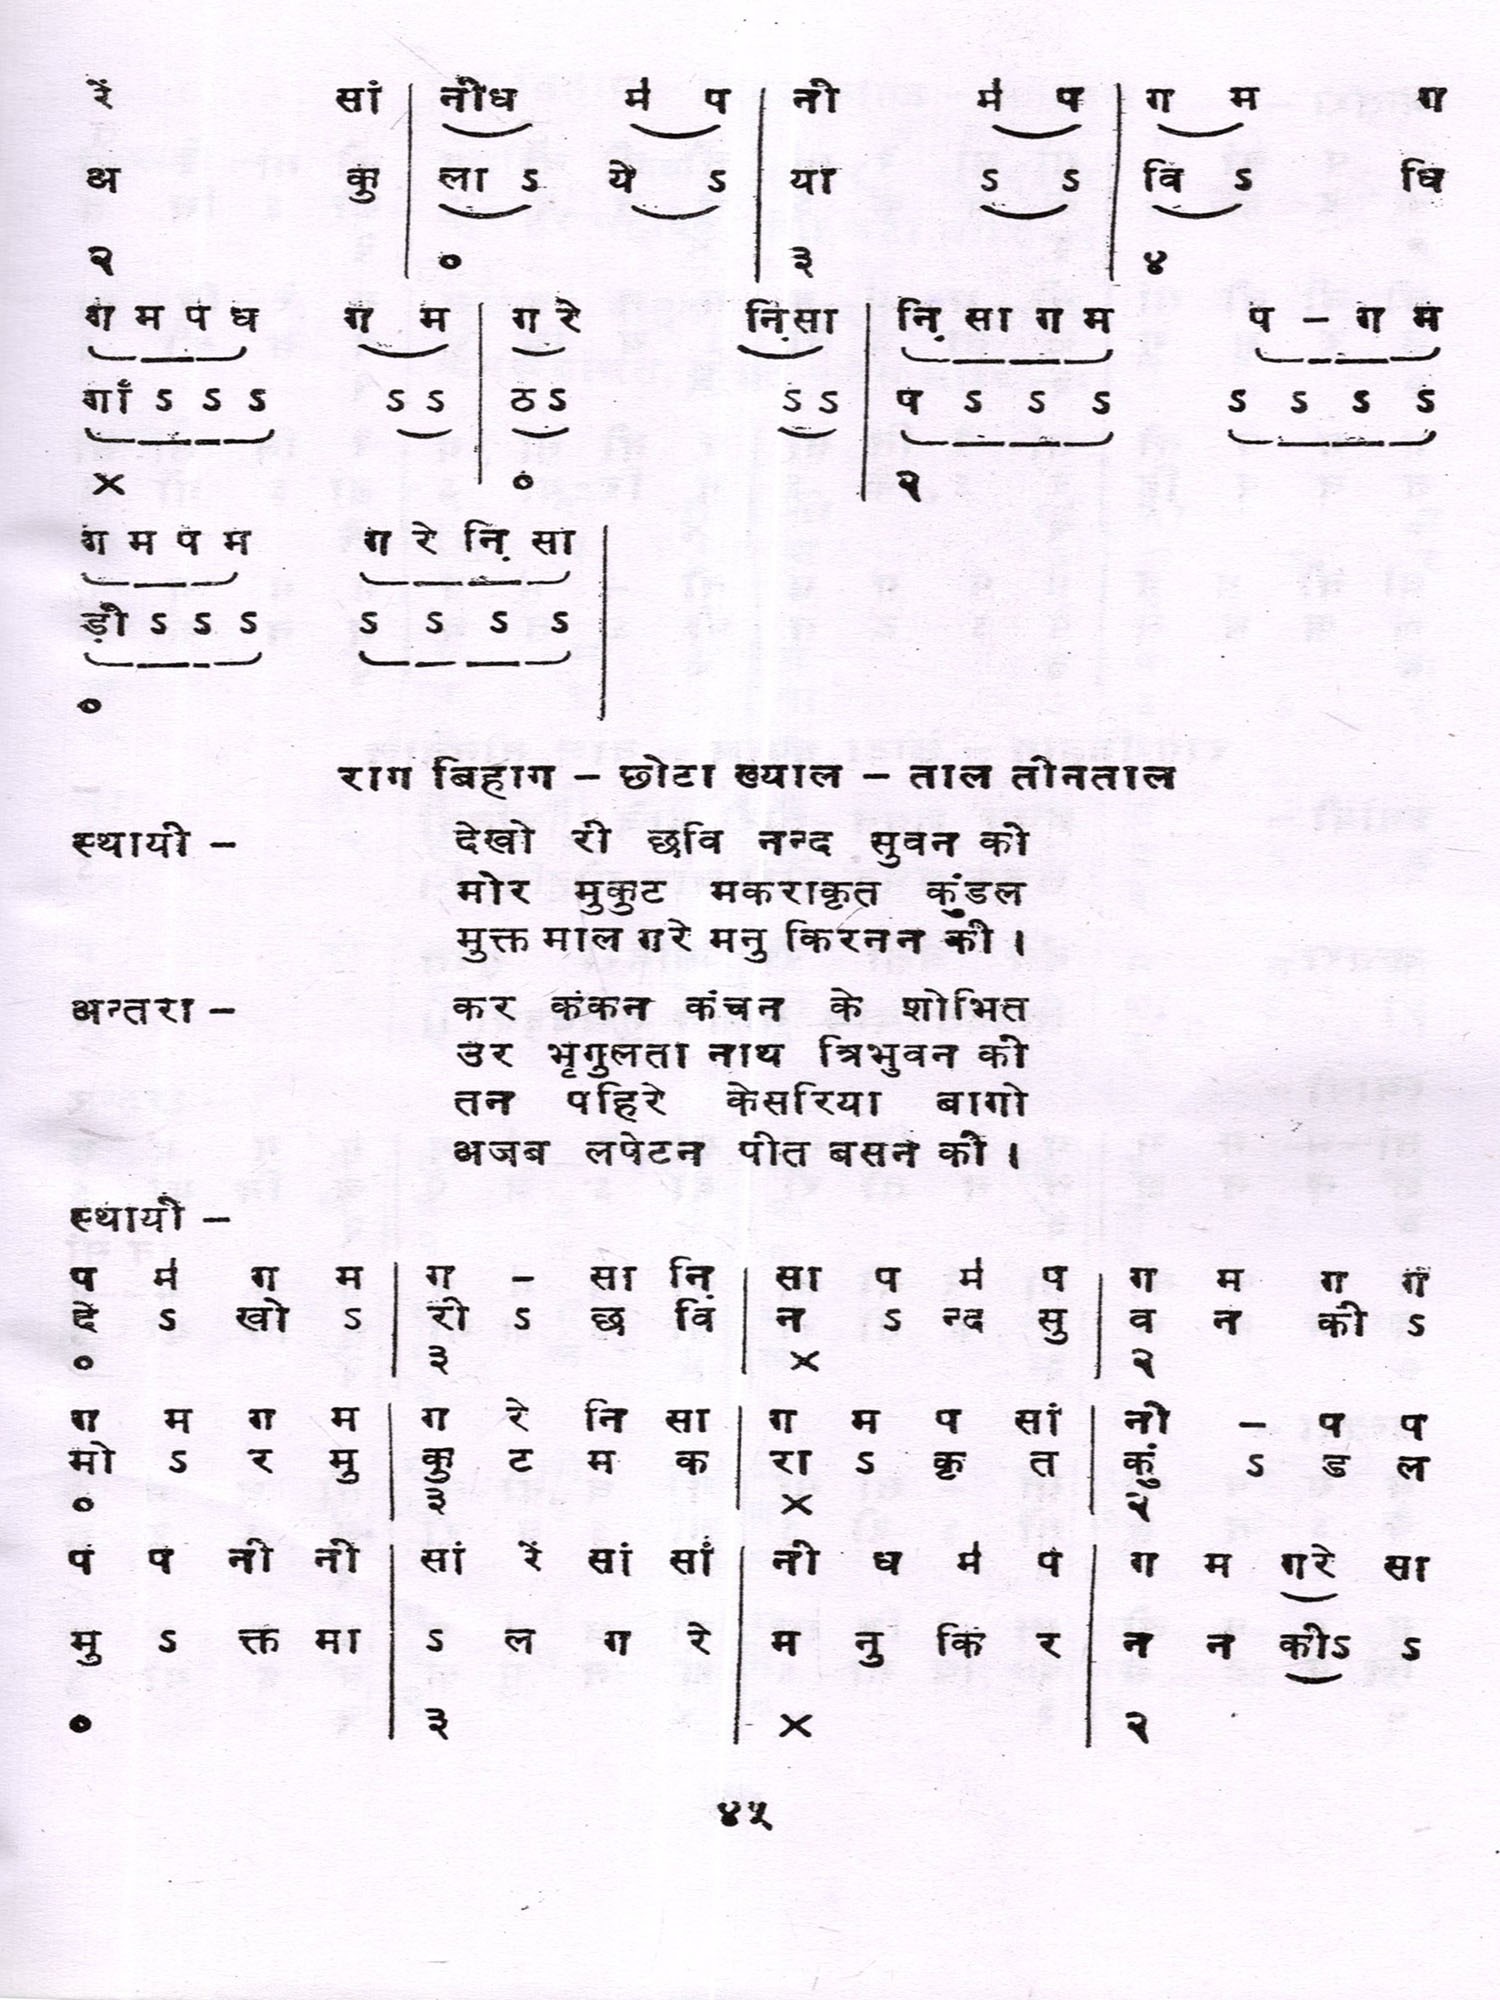 रें सां | नीध म॑ प | नी म॑ प | ग म ग
अ कु | ला ऽ ये ऽ | या ऽ ऽ | वि ऽ धि
२ | ० | ३ | ४
ग म प ध ग म | ग रे नि़सा | नि़ सा ग म प – ग म
गाँ ऽ ऽ ऽ ऽ ऽ | ठ ऽ ऽ ऽ | प ऽ ऽ ऽ ऽ ऽ ऽ ऽ
× | ० | २
ग म प म ग रे नि़ सा |
ड़ी ऽ ऽ ऽ ऽ ऽ ऽ ऽ |
०
राग बिहाग – छोटा ख्याल – ताल तीनताल
स्थायी – देखो री छवि नन्द सुवन की
मोर मुकुट मकराकृत कुंडल
मुक्त माल गरे मनु किरनन की ।
अन्तरा – कर कंकन कंचन के शोभित
उर भृगुलता नाथ त्रिभुवन की
तन पहिरे केसरिया बागो
अजब लपेटन पीत बसन की ।
स्थायी –
प म॑ ग म | ग – सा नि़ | सा प म॑ प | ग म ग ग
दे ऽ खो ऽ | री ऽ छ वि | न ऽ न्द सु | व न की ऽ
० | ३ | × | २
ग म ग म | ग रे नि सा | ग म प सां | नी – प प
मो ऽ र मु | कु ट म क | रा ऽ कृ त | कुं ऽ ड ल
० | ३ | × | २
प प नी नी | सां रें सां सां | नी ध म॑ प | ग म गरे सा
मु ऽ क्त मा | ऽ ल ग रे | म नु कि र | न न कीऽ ऽ
० | ३ | × | २
४५